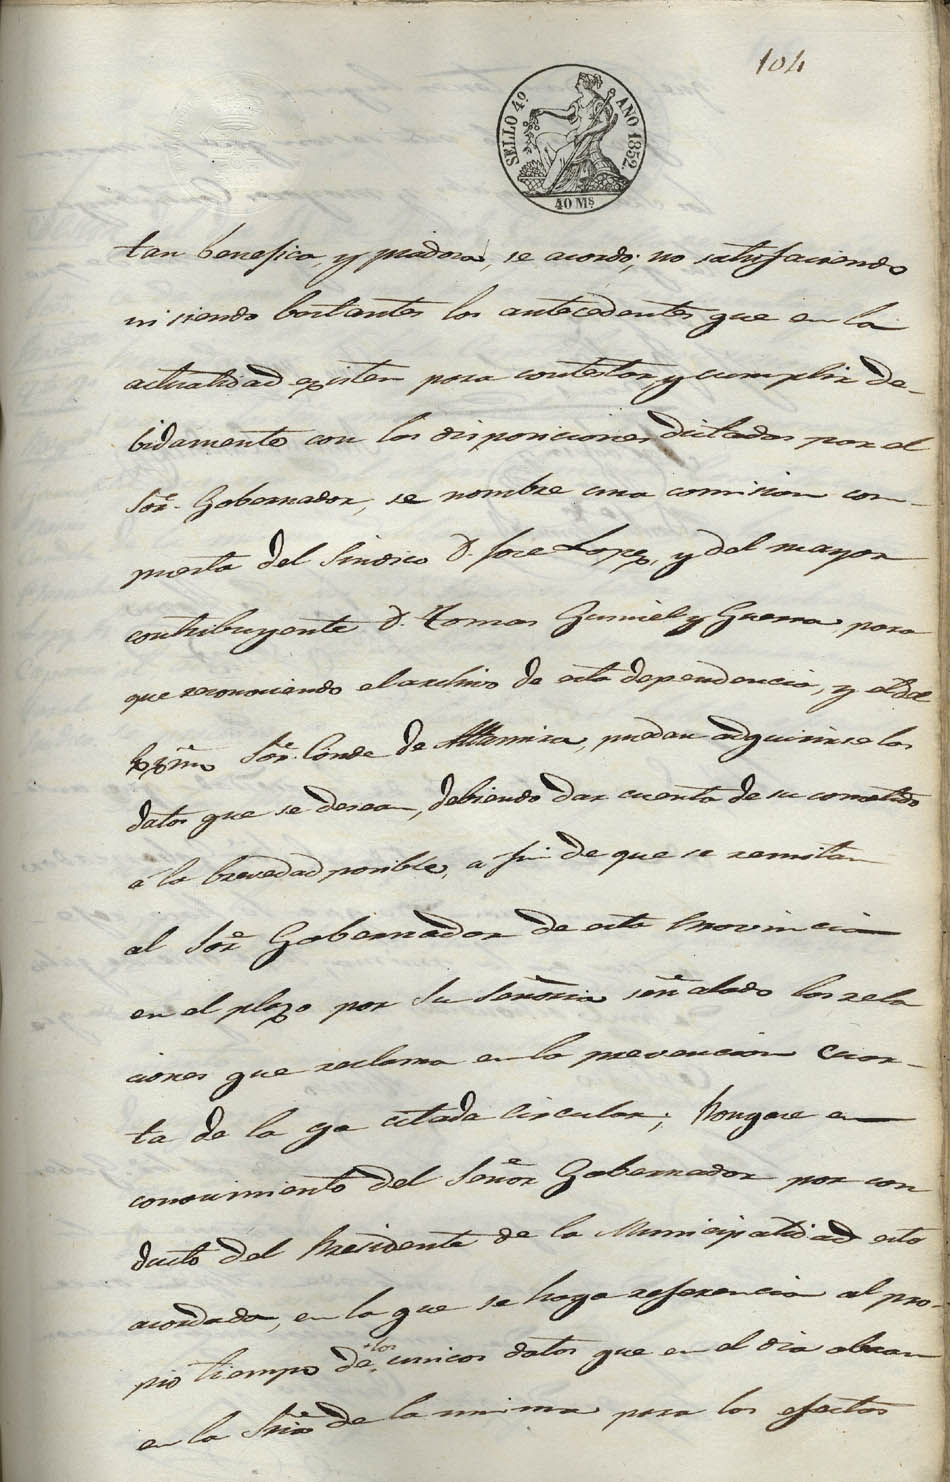 104
SELLO 4º AÑO 1852
40 Ms
tan benefica, y piadora, se acordo; no satisfaciendo
ni siendo bastantes los antecedentes que en la
actualidad existen para contestar y cumplir de-
bidamente con las disposiciones dictadas por el
Sor. Gobernador, se nombre una comision com-
puesta del Sindico D. Jose Lopez, y del mayor
contribuyente D. Tomas Gumiel y Guerra para
que reconociendo el archivo de esta dependencia, y el del
Exmo Sor. Conde de Altamira, puedan adquirirse los
datos que se desean, debiendo dar cuenta de su cometido
a la brevedad posible, a fin de que se remitan
al Sor Gobernador de esta Provincia
en el plazo por Su Señoria señalado las rela
ciones que reclama en la prevencion cuar-
ta de la ya citada circular; Pongase en
conocimiento del Señor Gobernador por con
ducto del Presidente de la Municipalidad esto
acordado, en la que se haga referencia al pro-
pio tiempo de los unicos datos que en el dia obran
en la Sria de la misma para los efectos